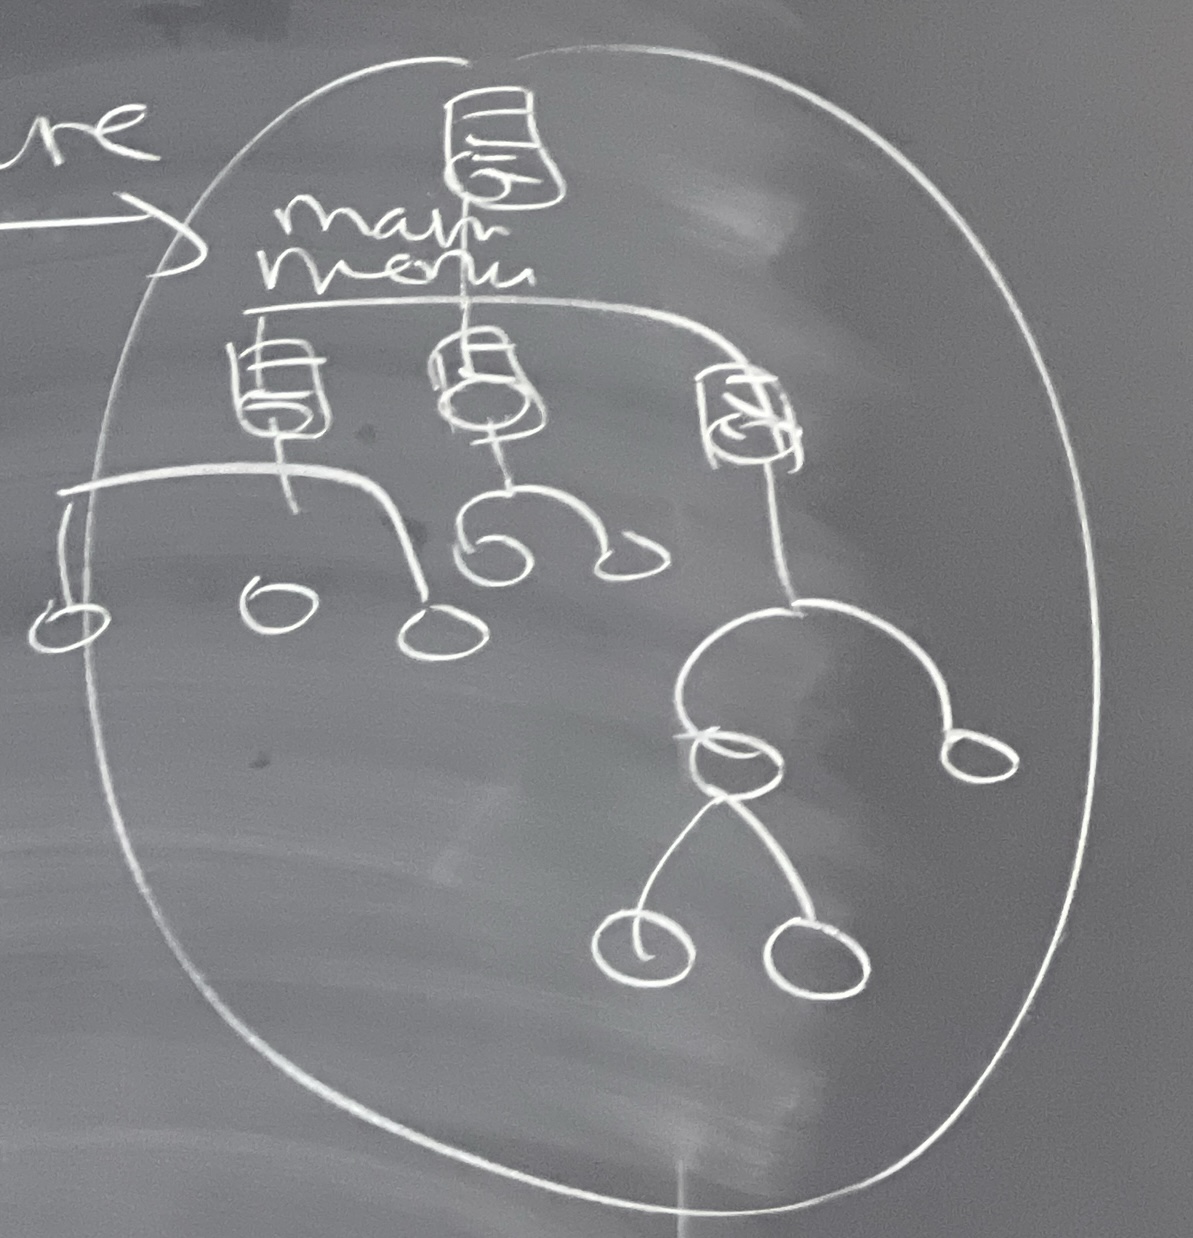 ure
main
menu